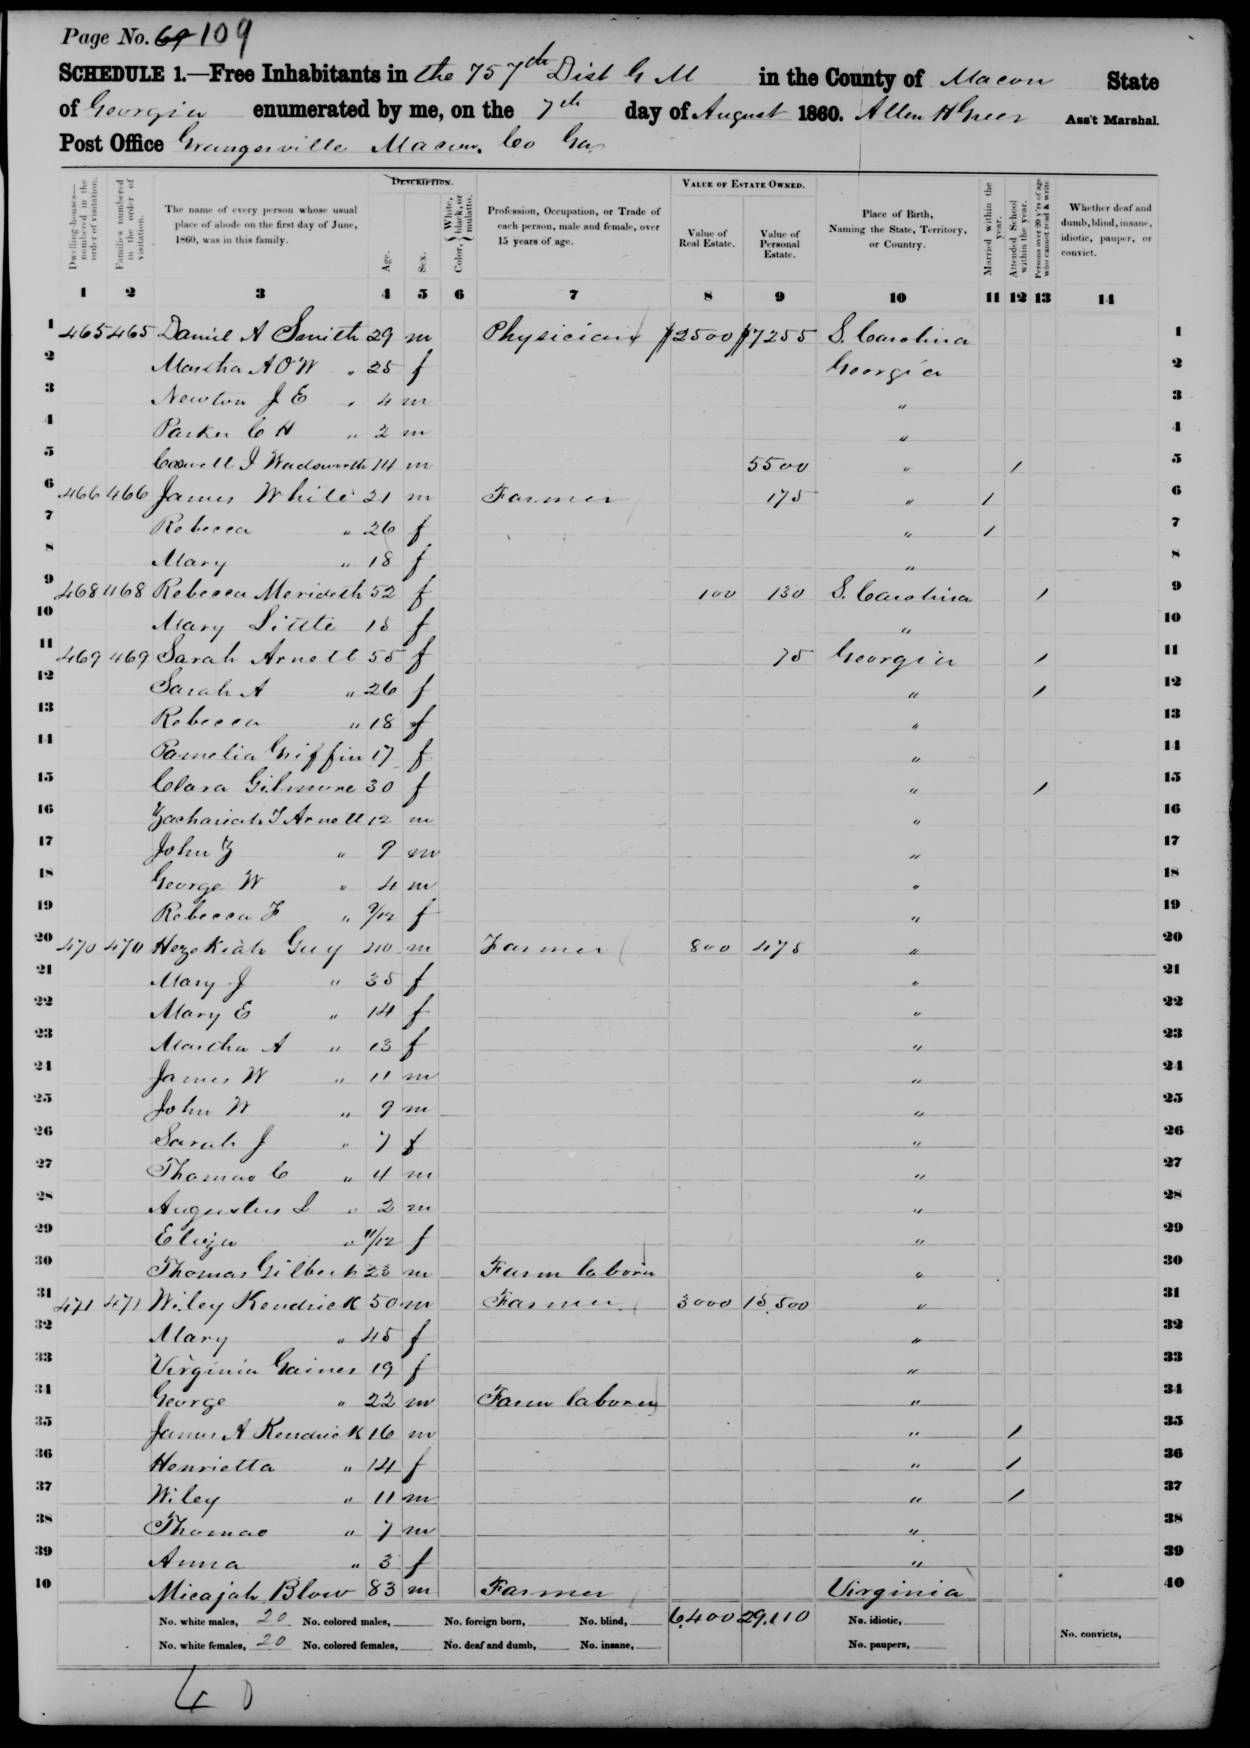 Page No. 69 109
SCHEDULE 1.—Free Inhabitants in the 757th Dist G M in the County of Macon State
of Georgia enumerated by me, on the 7th day of August 1860. Allen H Greer Ass't Marshal.
Post Office Grangerville Macon. Co Ga
Dwelling-houses—numbered in the order of visitation.
Families numbered in the order of visitation.
The name of every person whose usual place of abode on the first day of June, 1860, was in this family.
DESCRIPTION.
Age.
Sex.
Color, { White, black, or mulatto.
Profession, Occupation, or Trade of each person, male and female, over 15 years of age.
VALUE OF ESTATE OWNED.
Value of Real Estate.
Value of Personal Estate.
Place of Birth, Naming the State, Territory, or Country.
Married within the year.
Attended School within the year.
Persons over 20 y'rs of age who cannot read & write
Whether deaf and dumb, blind, insane, idiotic, pauper, or convict.
1 2 3 4 5 6 7 8 9 10 11 12 13 14
1 465 465 Daniel A Smith 29 m Physician $2500 $7255 S. Carolina 1
2 Martha A O W " 25 f Georgia 2
3 Newton J E " 4 m " 3
4 Parker C H " 2 m " 4
5 Caswell J Wadsworth 14 m 5500 " / 5
6 466 466 James White 21 m Farmer 175 " / 6
7 Rebecca " 26 f " / 7
8 Mary " 18 f " 8
9 468 468 Rebecca Merideth 52 f 100 130 S. Carolina / 9
10 Mary Little 18 f " 10
11 469 469 Sarah Arnett 55 f 75 Georgia / 11
12 Sarah A " 26 f " / 12
13 Rebecca " 18 f " 13
14 Pamelia Griffin 17 f " 14
15 Clara Gilmore 30 f " / 15
16 Zachariah T Arnett 12 m " 16
17 John Z " 9 m " 17
18 George W " 4 m " 18
19 Rebecca F " 9/12 f " 19
20 470 470 Hezekiah Guy 40 m Farmer 800 475 " 20
21 Mary J " 35 f " 21
22 Mary E " 14 f " 22
23 Martha A " 13 f " 23
24 James W " 11 m " 24
25 John W " 9 m " 25
26 Sarah J " 7 f " 26
27 Thomas C " 4 m " 27
28 Augustus L " 2 m " 28
29 Eliza " 11/12 f " 29
30 Thomas Gilbert 23 m Farm laborer " 30
31 471 471 Wiley Kendrick 50 m Farmer 3000 15,500 " 31
32 Mary " 45 f " 32
33 Virginia Gaines 19 f " 33
34 George " 22 m Farm laborer " 34
35 James A Kendrick 16 m " / 35
36 Henrietta " 14 f " / 36
37 Wiley " 11 m " / 37
38 Thomas " 7 m " 38
39 Anna " 3 f " 39
40 Micajah Blow 83 m Farmer Virginia 40
No. white males, 20 No. colored males, No. foreign born, No. blind, 6,400 29,110 No. idiotic,
No. white females, 20 No. colored females, No. deaf and dumb, No. insane, No. paupers, No. convicts,
40